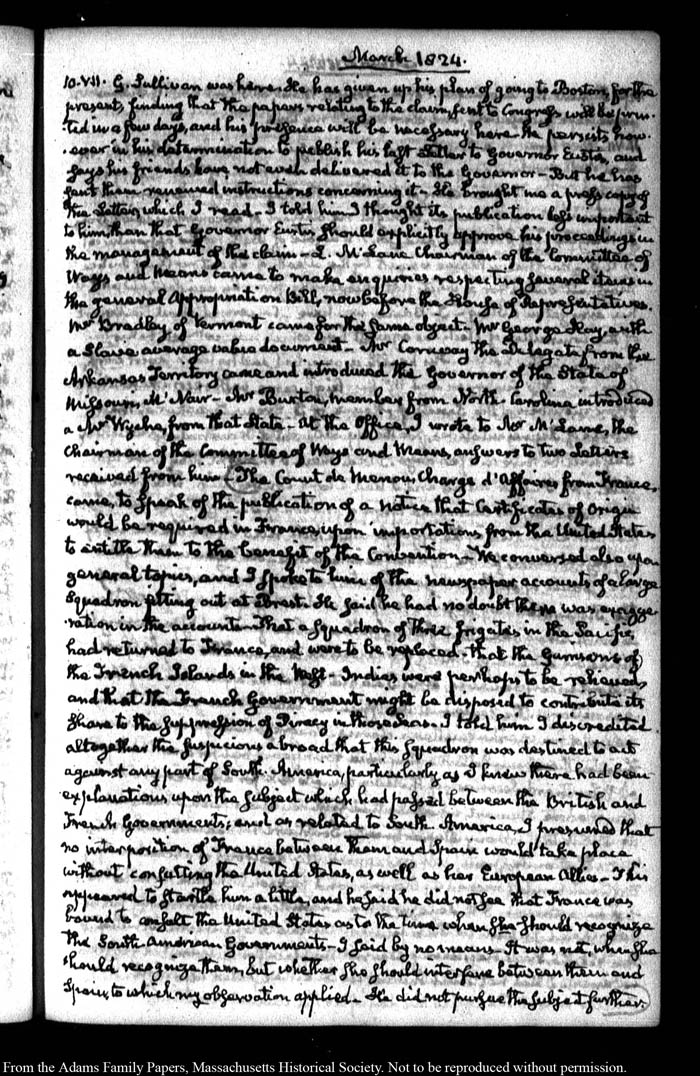 March 1824.
10. VII. G. Sullivan was here. He has given up his plan of going to Boston, for the
present, finding that the papers relating to the claim, sent to Congress will be prin-
ted in a few days, and his presence will be necessary here. He persists how-
ever in his determination to publish his last Letter to Governor Eustis, and
says his friends have not even delivered it to the Governor — But he has
sent them renewed instructions concerning it — He brought me a press copy of
the Letter, which I read — I told him I thought its publication less important
to him, than that Governor Eustis should explicitly approve his proceedings in
the management of the claim — L. McLane Chairman of the Committee of
Ways and Means came to make enquiries respecting several items in
the general Appropriation Bill, now before the House of Representatives.
Mr Bradley of Vermont came for the same object — Mr George Hay, with
a Slave average value document. Mr Conway the Delegate from the
Arkansas Territory came and introduced the Governor of the State of
Missouri, McNair — Mr Burton, member from North-Carolina introduced
a Mr Wyche, from that State — At the Office, I wrote to Mr McLane, the
Chairman of the Committee of Ways and Means, answers to two Letters
received from him — The Count de Menou, Chargé d'Affaires from France,
came, to speak of the publication of a notice that Certificates of Origin
would be required in France, upon importations from the United States
to entitle them to the benefit of the Convention — We conversed also upon
general topics, and I spoke to him of the newspaper accounts of a large
Squadron fitting out at Brest. He said he had no doubt there was exagge-
ration in the accounts — That a Squadron of three frigates in the Pacific,
had returned to France, and were to be replaced. That the Garrisons of
the French Islands in the West-Indies were perhaps to be relieved,
and that the French Government might be disposed to contribute its
share to the suppression of Piracy in those Seas. I told him I discredited
altogether the suspicions abroad that this Squadron was destined to act
against any part of South-America, particularly as I knew there had been
explanations upon the subject which had passed between the British and
French Governments; and as related to South America, I presumed that
no interposition of France between them and Spain would take place
without consulting the United States, as well as her European Allies — This
appeared to startle him a little, and he said he did not see that France was
bound to consult the United States as to the time when she should recognize
the South American Governments — I said by no means — It was not, when she
should recognize them, but whether she should interfere between them and
Spain, to which my observation applied. He did not pursue the subject further.
From the Adams Family Papers, Massachusetts Historical Society. Not to be reproduced without permission.